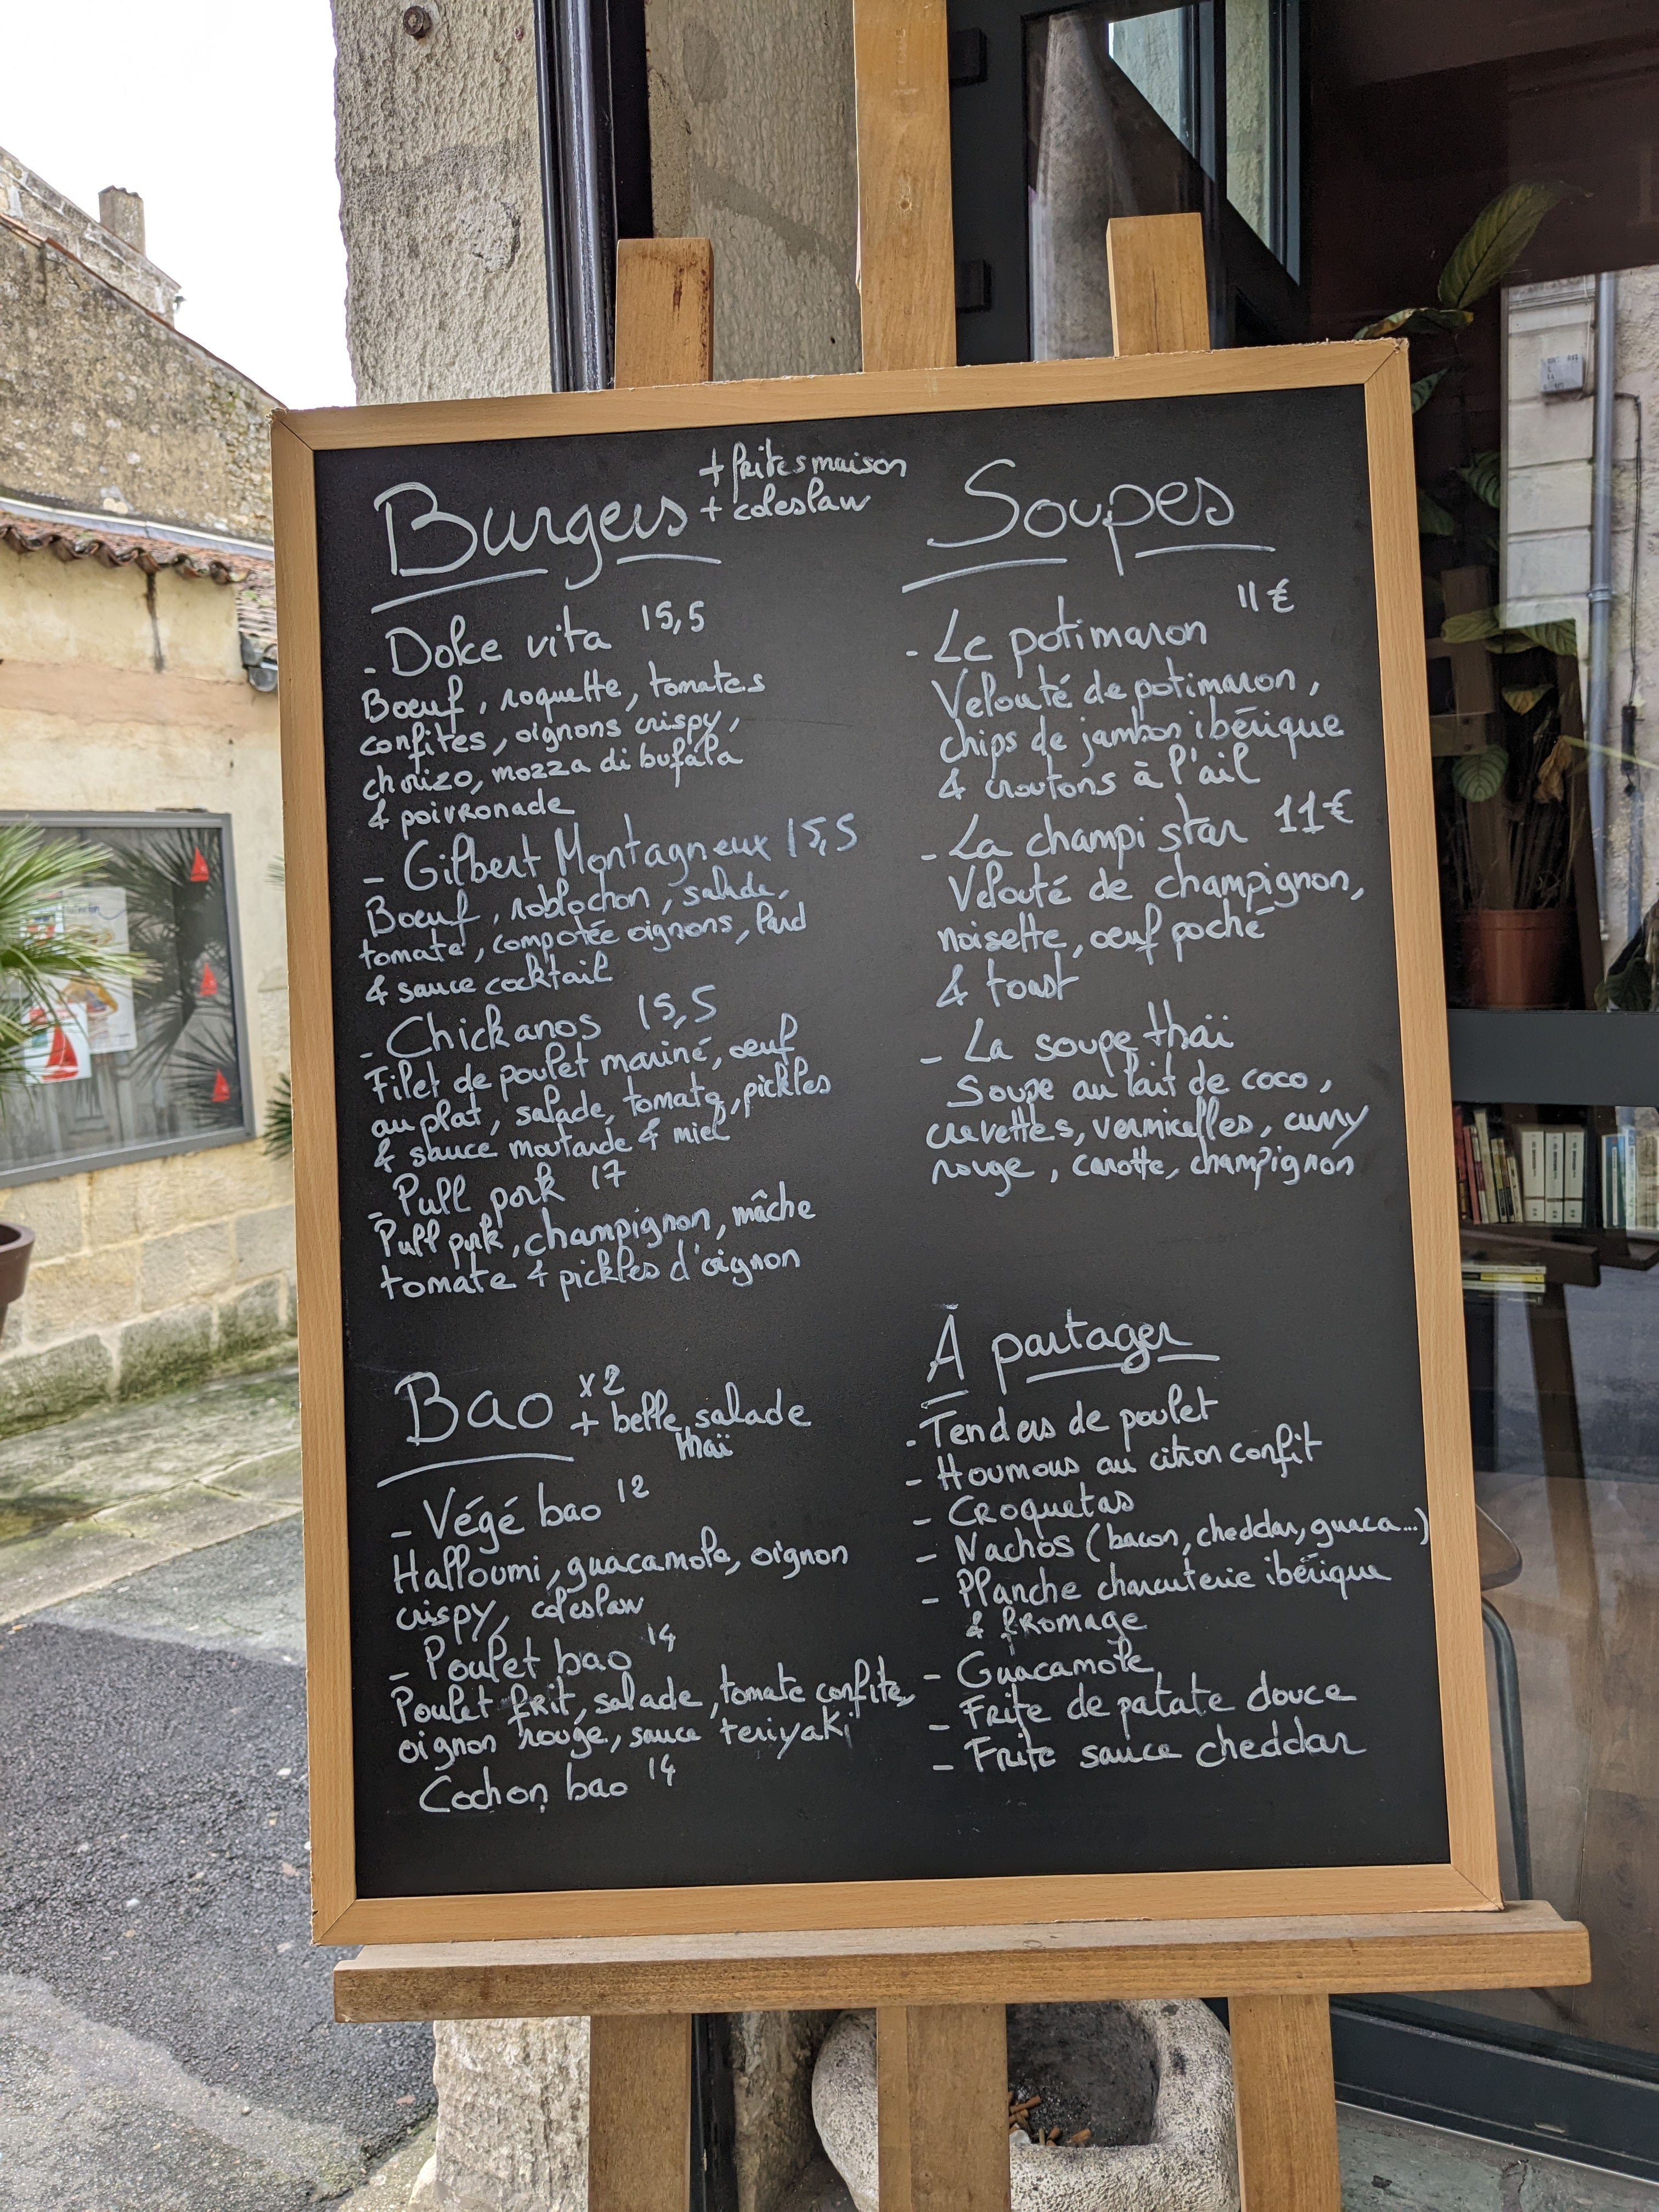 Burgers
+ frites maison
+ coleslaw
- Dolce vita 15,5
Boeuf, roquette, tomates
confites, oignons crispy,
chorizo, mozza di bufala
& poivronade
- Gilbert Montagneux 15,5
Boeuf, roblochon, salade,
tomate, compotée oignons, lard
& sauce cocktail
- Chickanos 15,5
Filet de poulet mariné, oeuf
au plat, salade, tomate, pickles
& sauce moutarde & miel
- Pull pork 17
Pull pork, champignon, mâche
tomate & pickles d'oignon
Bao x2
+ belle salade
thaï
- Végé bao 12
Halloumi, guacamole, oignon
crispy, coleslaw
- Poulet bao 14
Poulet frit, salade, tomate confite,
oignon rouge, sauce teriyaki
Cochon bao 14
Soupes
11€
- Le potimaron
Velouté de potimaron,
chips de jambon ibérique
& croutons à l'ail
- La champi star 11€
Velouté de champignon,
noisette, oeuf poché
& toast
- La soupe thaï
Soupe au lait de coco,
crevettes, vermicelles, curry
rouge, carotte, champignon
À partager
- Tenders de poulet
- Houmous au citron confit
- Croquetas
- Nachos (bacon, cheddar, guaca...)
- Planche charcuterie ibérique
& fromage
- Guacamole
- Frite de patate douce
- Frite sauce cheddar